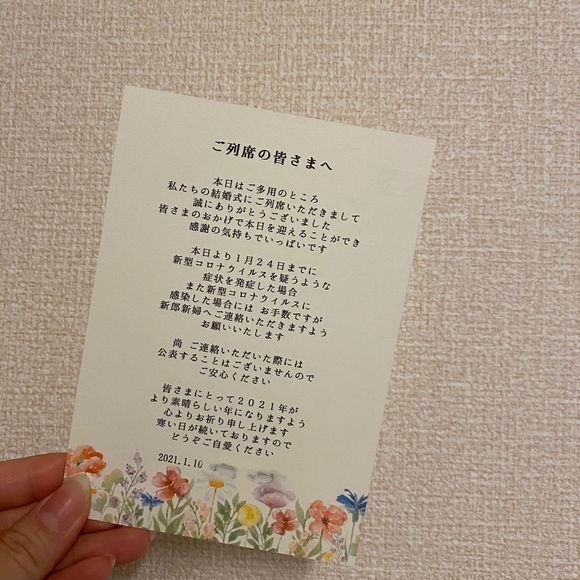 ご列席の皆さまへ
本日はご多用のところ
私たちの結婚式にご列席いただきまして
誠にありがとうございました
皆さまのおかげで本日を迎えることができ
感謝の気持ちでいっぱいです
本日より1月24日までに
新型コロナウイルスを疑うような
症状を発症した場合
また新型コロナウイルスに
感染した場合には お手数ですが
新郎新婦へご連絡いただきますよう
お願いいたします
尚 ご連絡いただいた際には
公表することはございませんので
ご安心ください
皆さまにとって2021年が
より素晴らしい年になりますよう
心よりお祈り申し上げます
寒い日が続いておりますので
どうぞご自愛ください
2021.1.10